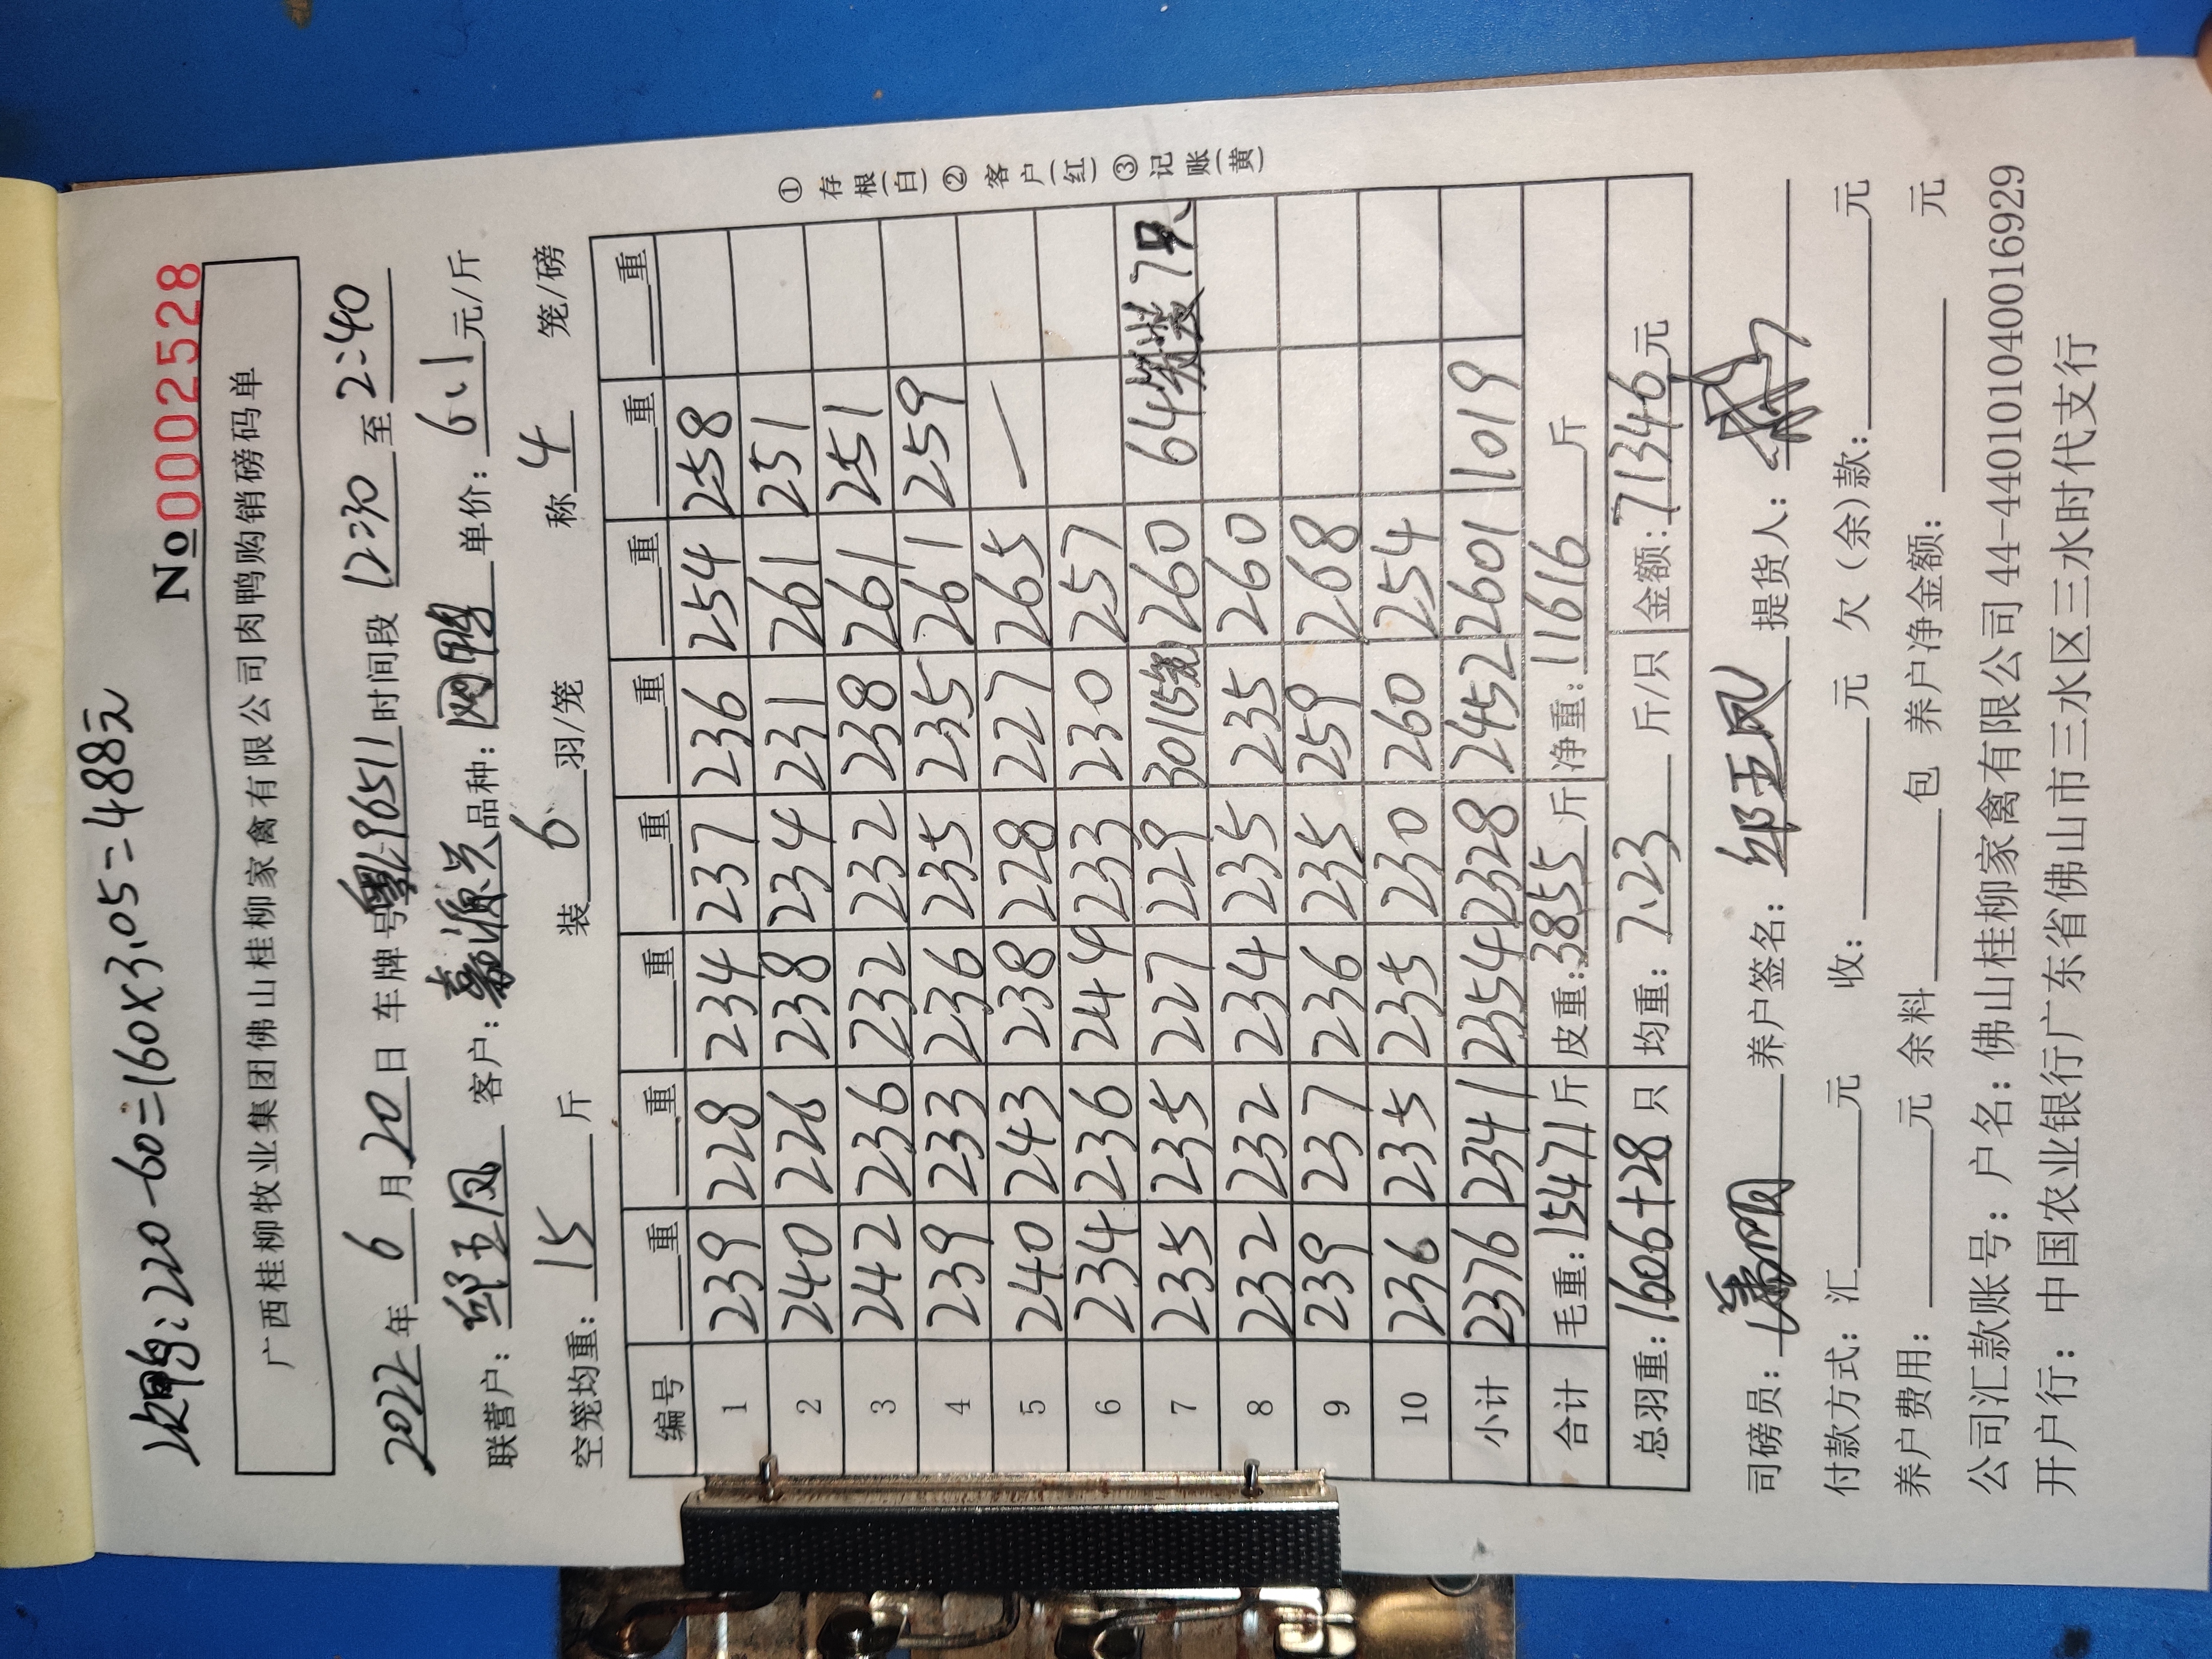 次鸭:220-60=160×3.05=488元
No 0002528
广西桂柳牧业集团佛山桂柳家禽有限公司肉鸭购销磅码单
2022年6月20日 车牌号粤L96511时间段12:30至2:40
联营户:邱玉凤 客户:嘉源兴 品种:网鸭 单价:6.1元/斤
空笼均重:15斤 装6羽/笼 称4笼/磅
编号 重 重 重 重 重 重 重 重
1 239 228 234 237 236 254 258
2 240 226 238 234 231 261 251
3 242 236 232 232 238 261 251
4 239 233 236 235 235 261 259
5 240 243 238 228 227 265 —
6 234 236 244 233 230 257
7 235 235 227 229 301 15笼 260 64笼装7只
8 232 232 234 235 235 260
9 239 237 236 235 259 268
10 236 235 235 230 260 254
小计 2376 2341 2354 2328 2452 2601 1019
合计 毛重:15471斤 皮重:3855斤 净重:11616斤
总羽重:1606+28只 均重:7.23斤/只 金额:71346元
①存根(白)②客户(红)③记账(黄)
司磅员: 养户签名:邱玉凤 提货人:
付款方式:汇 元 收: 元 欠(余)款: 元
养户费用: 元 余料 包 养户净金额: 元
公司汇款账号:户名:佛山桂柳家禽有限公司44-440101040016929
开户行:中国农业银行广东省佛山市三水区三水时代支行